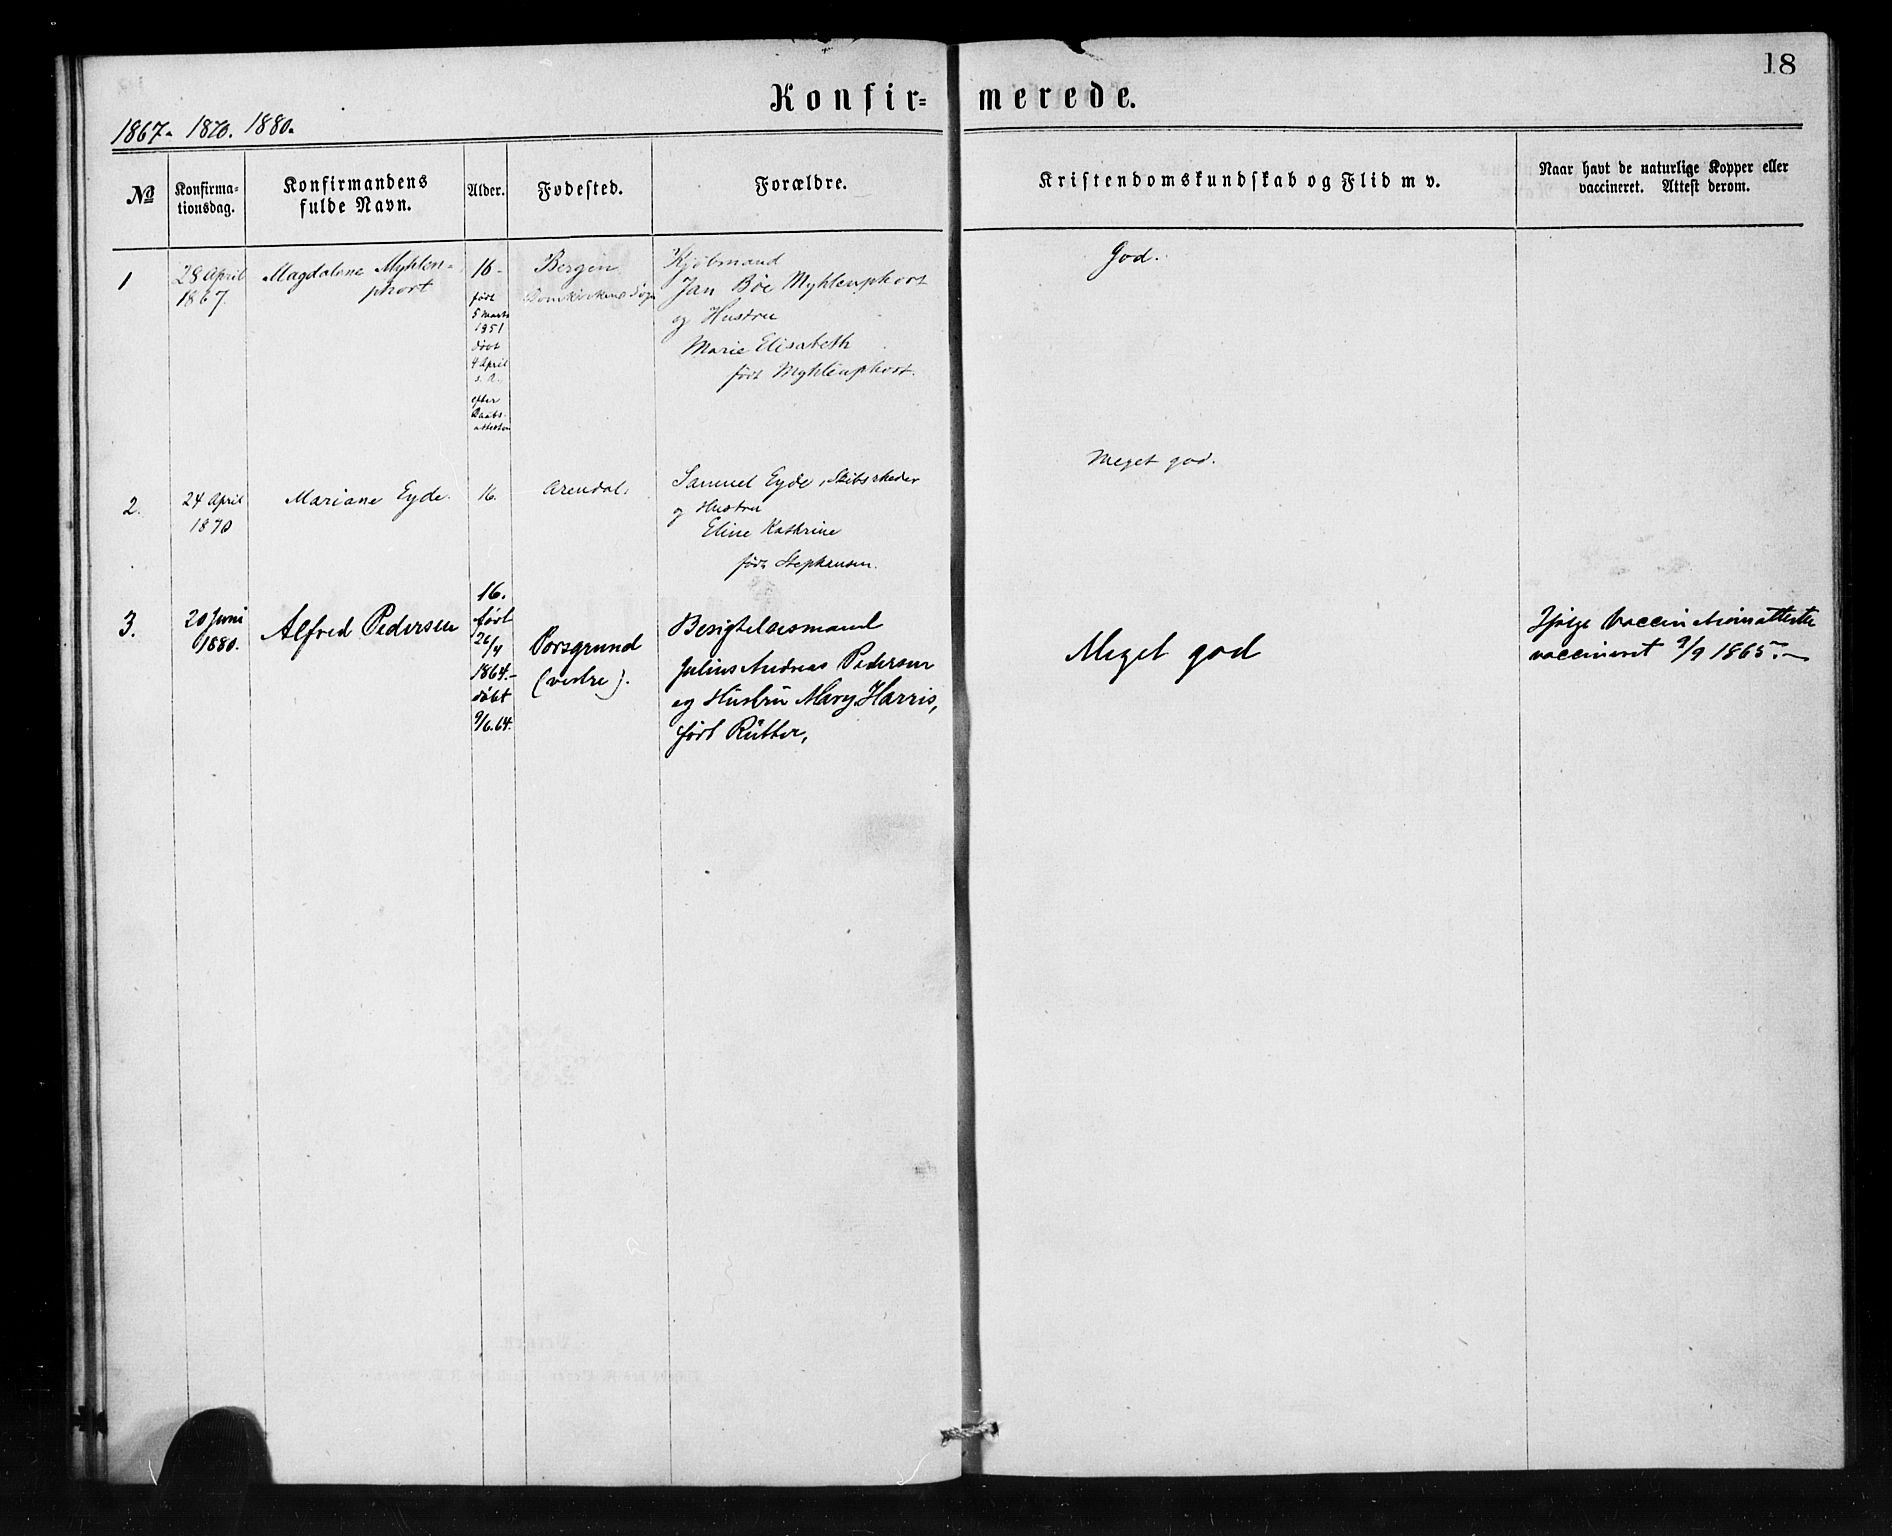 18
Konfir= merede.
1867. 1870. 1880.
No
Konfirma-
tionsdag.
Konfirmandens
fulde Navn.
Alder.
Fødested.
Forældre.
Kristendomskundskab og Flid m v.
Naar havt de naturlige Kopper eller
vaccineret. Attest derom.
1
28 April
1867.
Magdalene Myhlen-
phort
16-
født
5 Marts
1851
døbt
4 April
s. A.
efter
Daabs-
attesten
Bergen
Domkirkens Sogn
Kjøbmand
Jan Böe Myhlenphort
og Hustru
Marie Elisabeth
født Myhlenphort.
God.
2.
24 April
1870
Mariane Eyde.
16.
Arendal.
Samuel Eyde, Skibsrheder
og Hustru
Eline Kathrine
født Stephansen.
Meget god.
3.
20 Juni
1880.
Alfred Pedersen
16.
født
26/4
1864.-
døbt
9/6.64.
Porsgrund
(vestre).
Besigtelsesmand
Julius Andreas Pedersen
og Hustru Mary Harris,
født Rütter,
Meget god
Ifølge Vaccinationsattest
vaccineret 9/9 1865.-